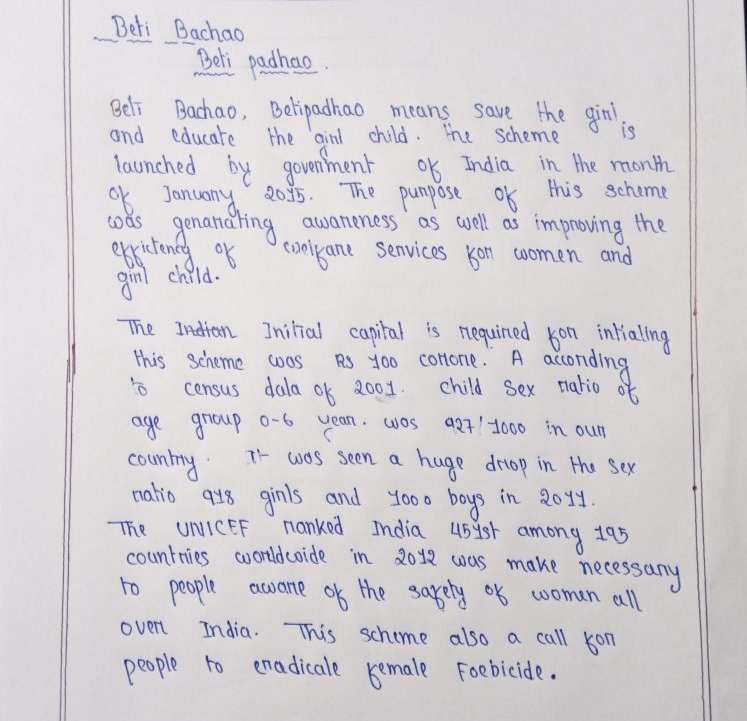 Beti Bachao
Beti padhao.
Beti Bachao, Betipadhao means save the girl,
and educate the girl child. The scheme is
launched by goverment of India in the month
of January 2015. The purpose of this scheme
was genarating awareness as well as improving the
effictency of welfare services for women and
girl child.
The Indian Initial capital is required for intialing
this scheme was Rs 100 corore. A according
to census data of 2001. child sex ratio of
age group 0-6 year. was 927/1000 in our
country. It was seen a huge drop in the sex
ratio 918 girls and 1000 boys in 2011.
The UNICEF ranked India 451st among 195
countries worldwide in 2012 was make necessary
to people aware of the safety of women all
over India. This scheme also a call for
people to eradicale female Foebicide.